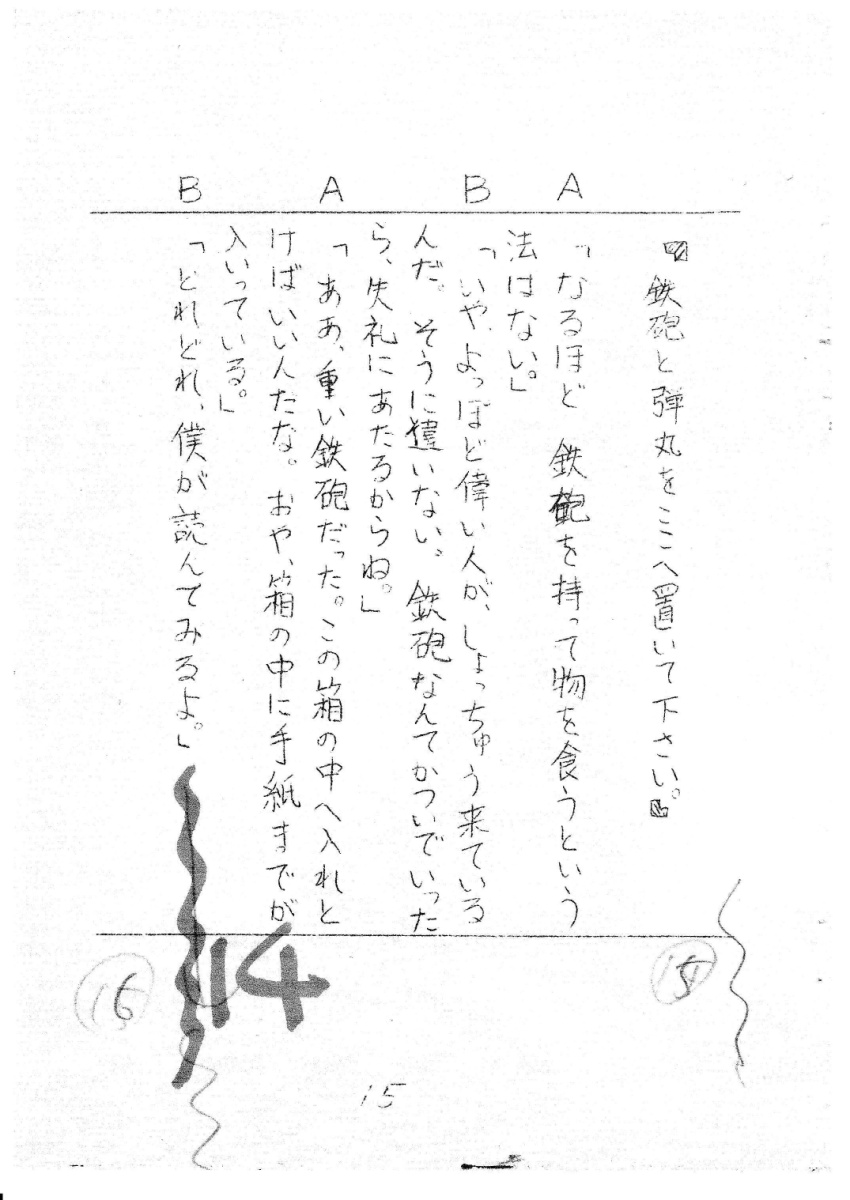 『鉄砲と弾丸をここへ置いて下さい。』
A
「なるほど 鉄砲を持って物を食うという
法はない。」
B
「いや、よっぽど偉い人が、しょっちゅう来ている
んだ。そうに違いない。鉄砲なんてかついでいった
ら、失礼にあたるからね。」
A
「ああ、重い鉄砲だった。この箱の中へ入れと
けばいいんだな。おや、箱の中に手紙までが
入いっている。」
B
「どれどれ、僕が読んでみるよ。」
15
14
16
15